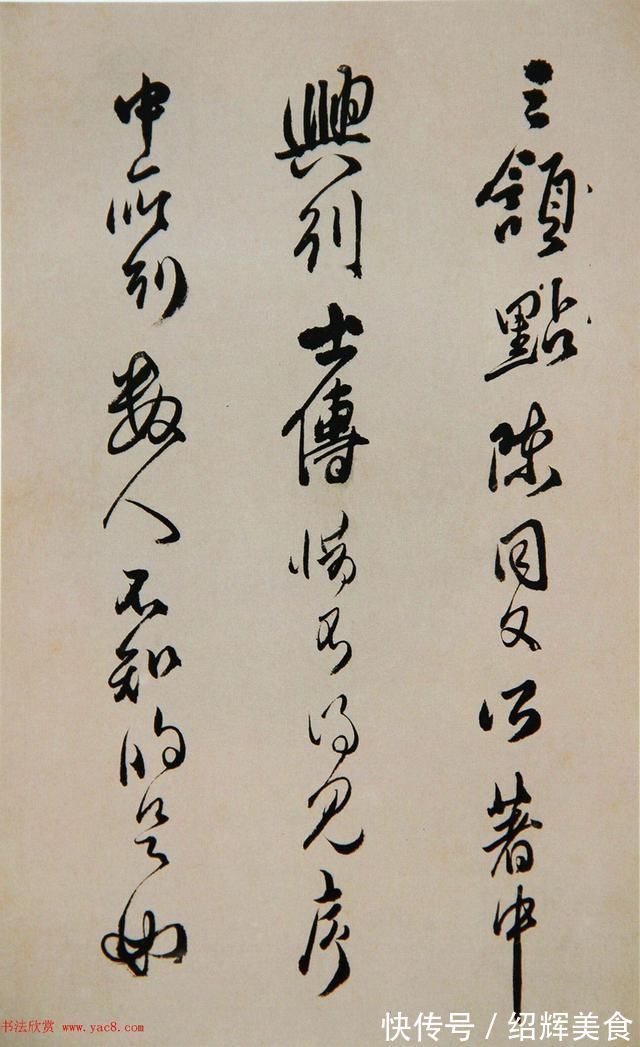 三頷點陳同父所著中
興列士傳惜得見序
中所列數人不知的是如
书法欣赏 www.yac8.com
快传号 / 绍辉美食